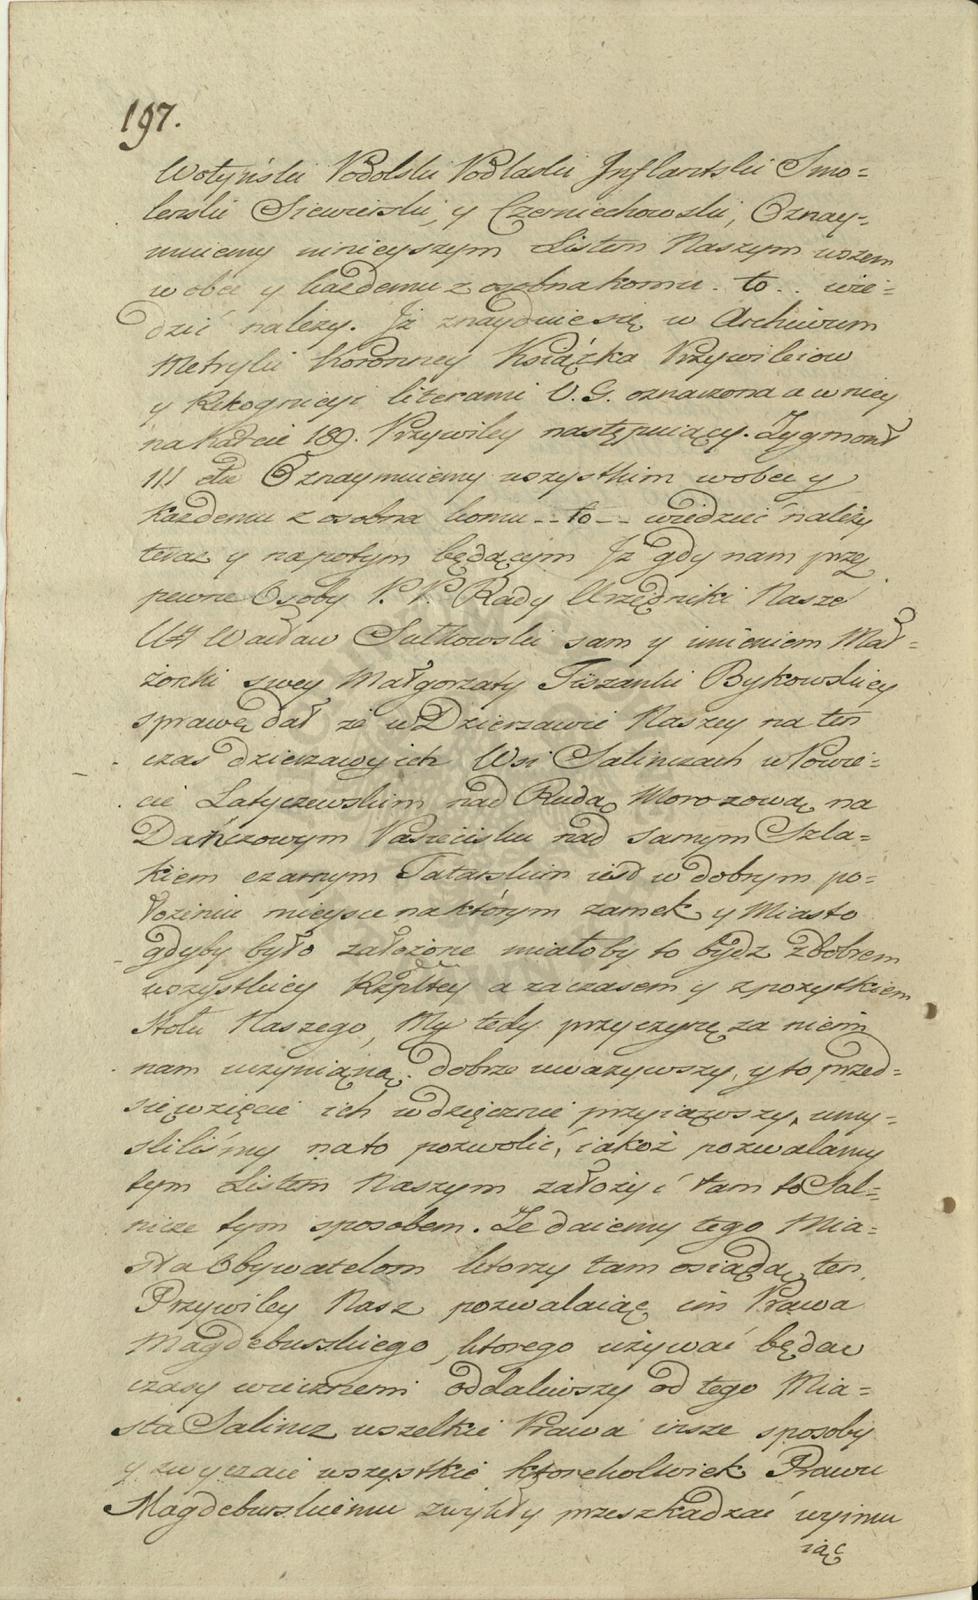 197.
Wołyński Podolski Podlaski Inflantski Smo-
lenski Siewierski, y Czerniechowski, Oznay-
muiemy ninieyszym Listem Naszym wszem
wobec y każdemu z osobna komu .. to .. wie-
dzić należy. Iż znayduie się w Archiwum
Metryki Koronney Książka Przywileiow
y Rekognicyi literami V. G. oznaczona a w niey
na karcie 189. Przywiley następuiący. Zygmunt
III etc Oznaymuiemy wszystkim wobec y
każdemu z osobna komu -- to -- wiedzieć należy
teraz y napotym będącym Iż gdy nam przez
pewne Osoby P. P. Rady Urzędniki Nasze
Ur Wacław Sutkowski sam y imieniem Mał-
żonki swey Małgorzaty Tiszanki Bykowskiey
sprawę dał że w Dzierzawie Naszey na ten
czas dzierzawy ich Wsi Salinczach w Powie-
cie Latyczewskim nad Rudą Morozową na
Dańczowym Pasieczisku nad samym Szla-
kiem czarnym Tatarskim iest w dobrym po-
łożeniu mieysce na którym zamek y Miasto
gdyby było założone miałoby to bydz z dobrem
wszystkiey Rzpltey a za czasem y z pożytkiem
Stołu Naszego, My tedy przyczynę za niemi
nam uczynioną dobrze uważywszy, y to przed-
sięwzięcie ich wdzięcznie przyiąwszy, umy-
śliliśmy na to pozwolić, iakoż pozwalamy
tym Listem Naszym założyć tam to Sal-
nicze tym sposobem. Ze daiemy tego Mia-
sta Obywatelom ktorzy tam osiądą, ten
Przywiley Nasz pozwalaiąc im Prawa
Magdeburskiego, ktorego używać będą w
czasy wiecznemi oddaliwszy od tego Mia-
sta Salincz wszelkie Prawa insze sposoby
y zwyczaie wszystkie ktorekolwiek Prawu
Magdeburskiemu zwykły przeszkadzać wyimu
iąc